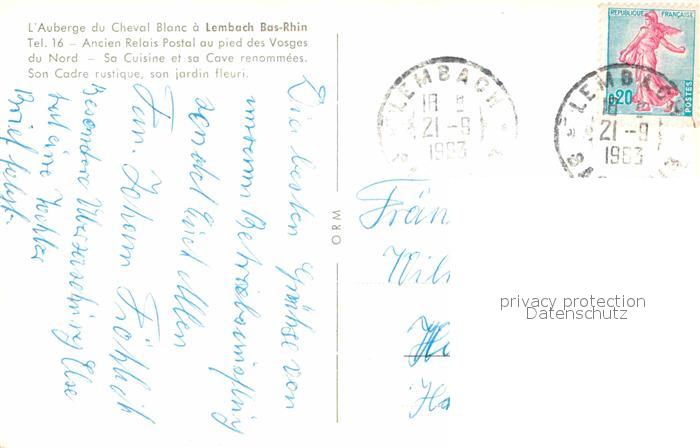 L'Auberge du Cheval Blanc à Lembach Bas-Rhin
Tel. 16 – Ancien Relais Postal au pied des Vosges
du Nord – Sa Cuisine et sa Cave renommées.
Son Cadre rustique, son jardin fleuri.
REPUBLIQUE FRANÇAISE
0,20
POSTES
LEMBACH
18 H
21-9
1963
LEMBACH
18 H
21-9
1963
Die besten Grüße von
unserem Betriebsausflug
sendet Euch allen
Fam. Johann Fröhlich
Besondere Überraschung Else
hat eine
Brief folgt.
ORM
Frän
Wil
Ha
privacy protection
Datenschutz